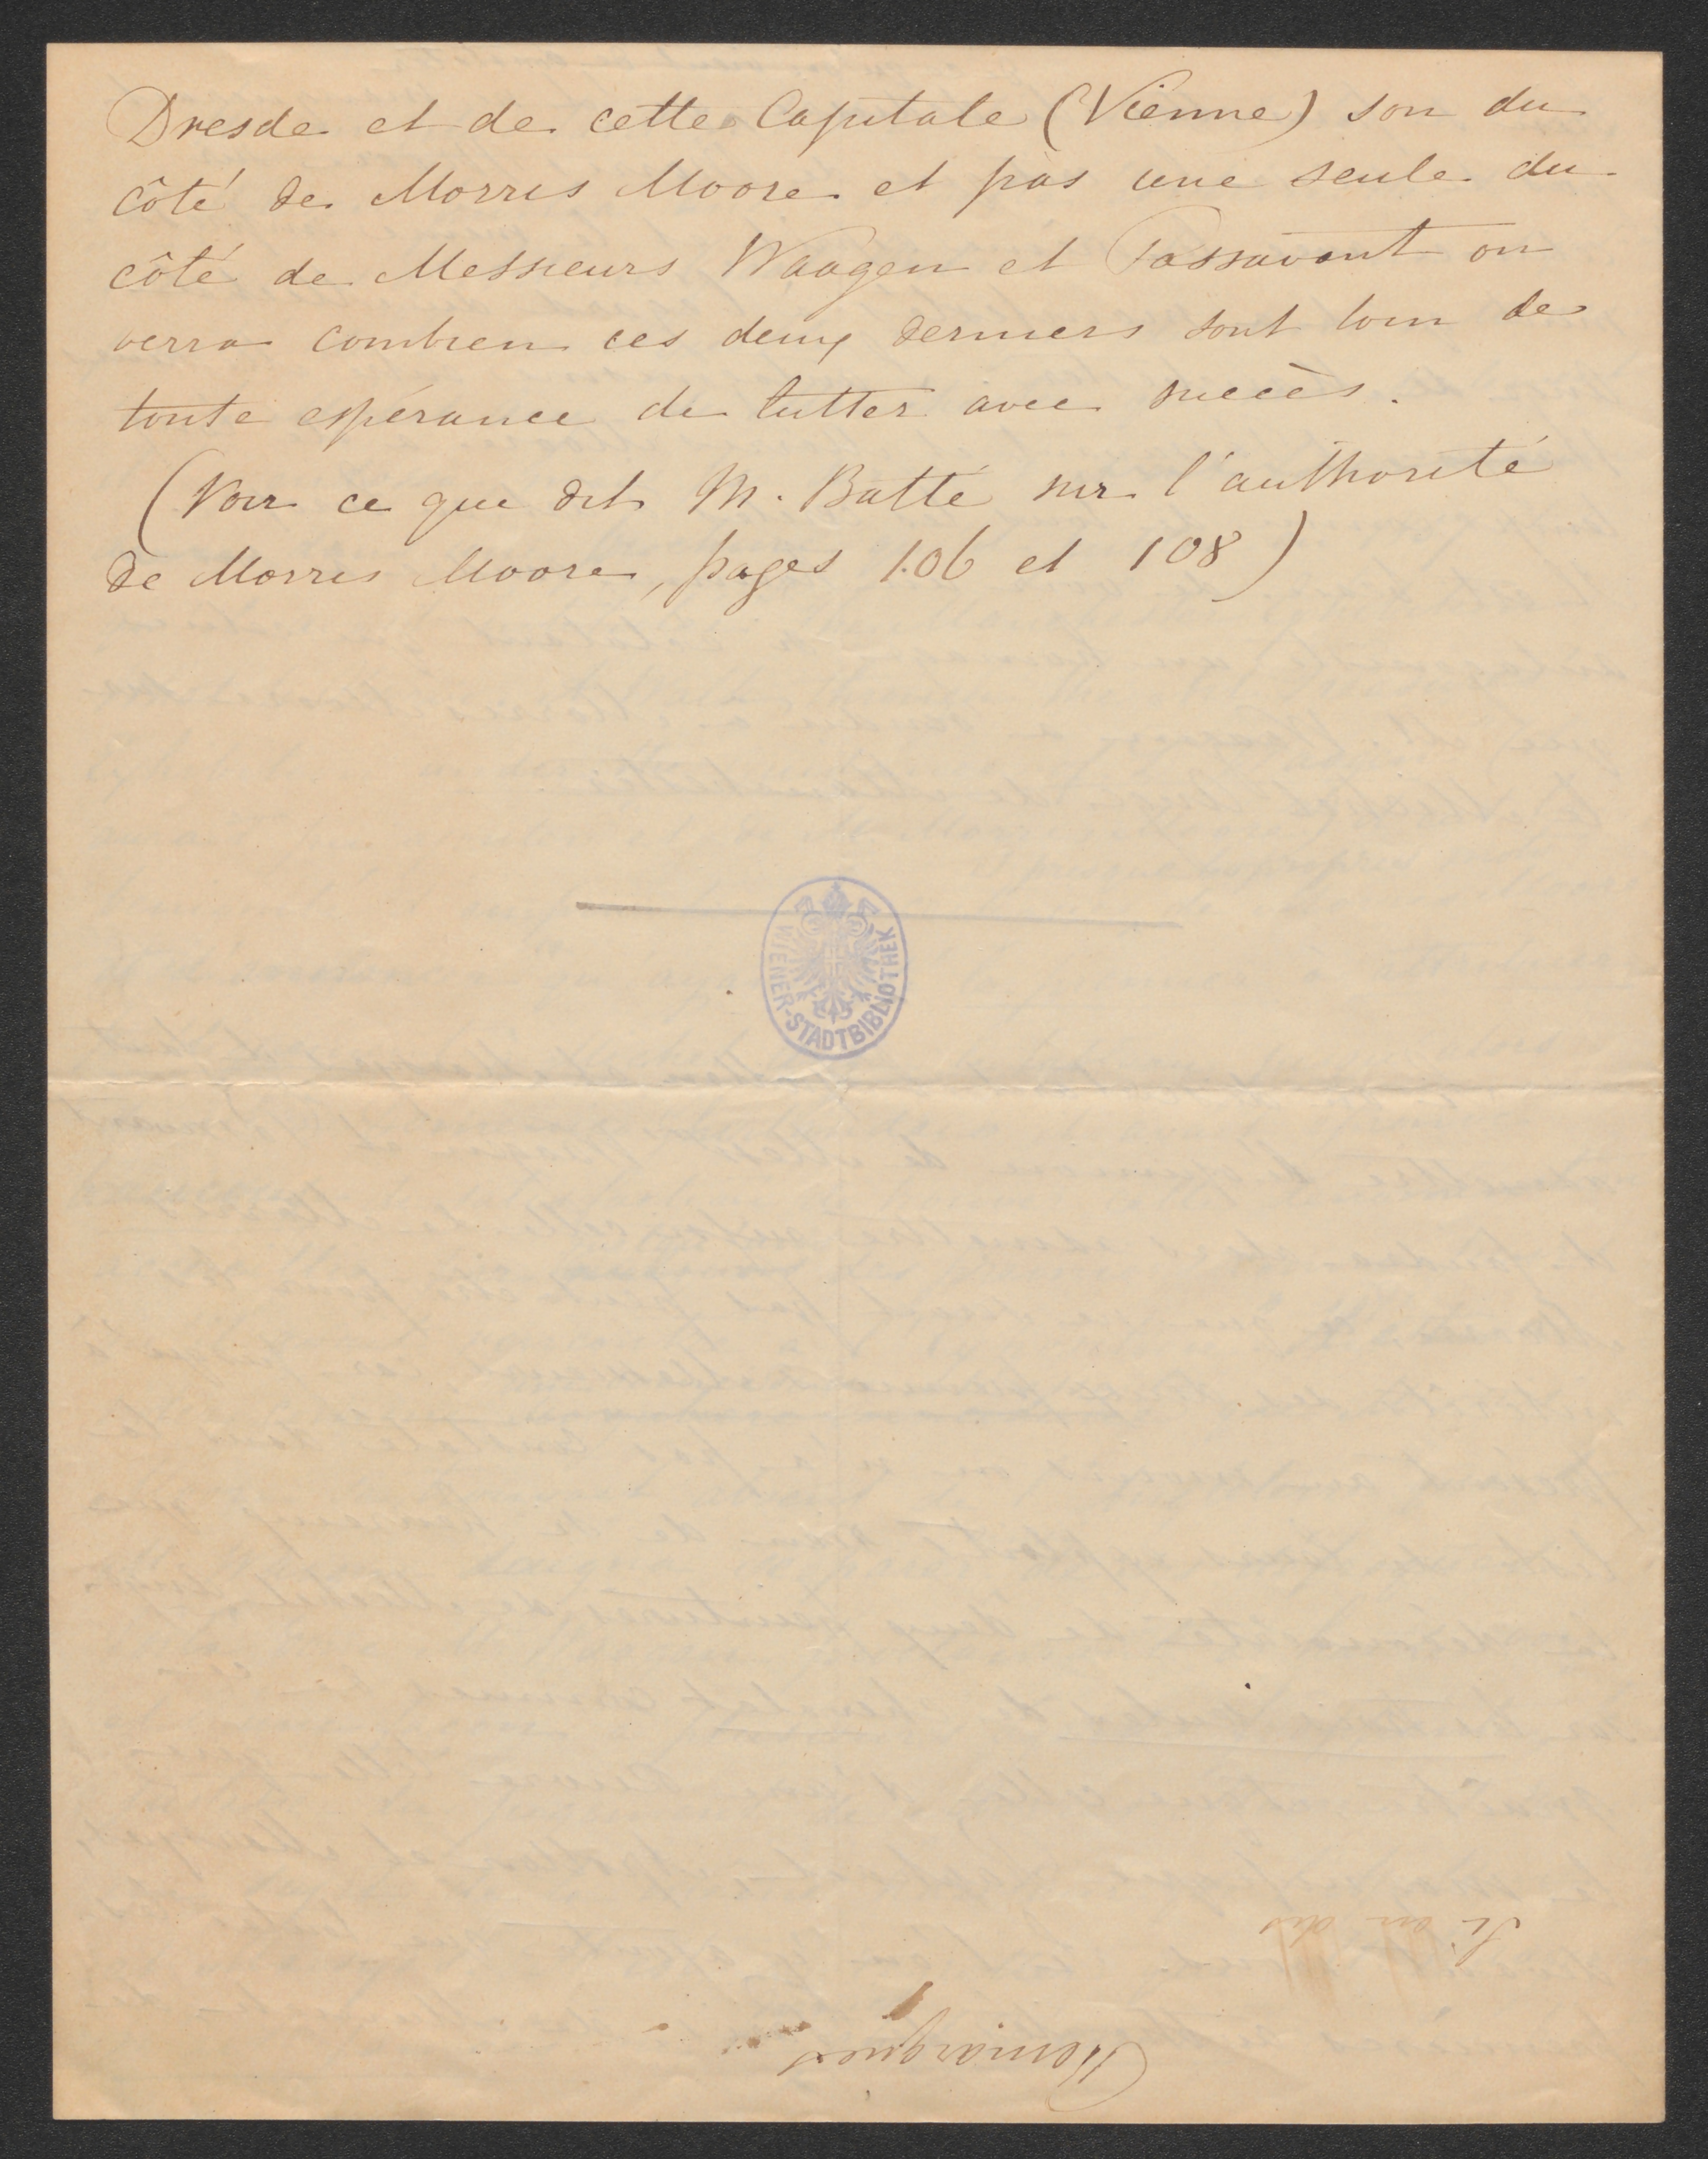 Dresde et de cette Capitale (Vienne) son du
côté de Morris Moore et pas une seule du
côté de Messieurs Waagen et Passavant on
verra combien ces deux derniers sont loin de
toute espérance de lutter avec succès.
(Voir ce que dit M. Batté sur l'authorité
de Morris Moore, pages 106 et 108)
WIENER-STADTBIBLIOTHEK
Si on dis
Remarques